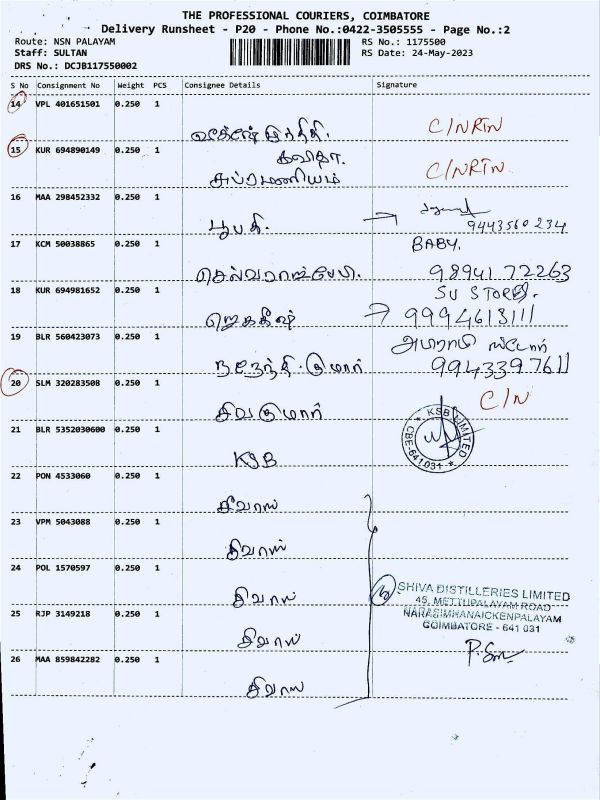 THE PROFESSIONAL COURIERS, COIMBATORE
Delivery Runsheet - P20 - Phone No.:0422-3505555 - Page No.:2
Route: NSN PALAYAM
RS No.: 1175500
Staff: SULTAN
RS Date: 24-May-2023
DRS No.: DCJB117550002
S No Consignment No Weight PCS Consignee Details Signature
14 VPL 401651501 0.250 1
C/NRTN
15 KUR 694890149 0.250 1
கவிதா.
C/NRTN
16 MAA 298452332 0.250 1
பூபதி.
9443560234
17 KCM 50038865 0.250 1
BABY.
செல்வராஜ்பேபி.
98941 72263
18 KUR 694981652 0.250 1
SU STORES.
ஜெகதீஷ்
9994613111
19 BLR 560423073 0.250 1
அபராமி ஸ்டோர்
குமார்
9943397611
20 SLM 320283508 0.250 1
C/N
சிவகுமார்
KSB LIMITED
CBE-641031
21 BLR 5352030600 0.250 1
KSB
22 PON 4533060 0.250 1
சிவாஸ்
23 VPM 5043088 0.250 1
சிவாஸ்
24 POL 1570597 0.250 1
சிவாஸ்
SHIVA DISTILLERIES LIMITED
45, METTUPALAYAM ROAD
NARASIMHANAICKENPALAYAM
COIMBATORE - 641 031
25 RJP 3149218 0.250 1
சிவாஸ்
26 MAA 859842282 0.250 1
சிவாஸ்